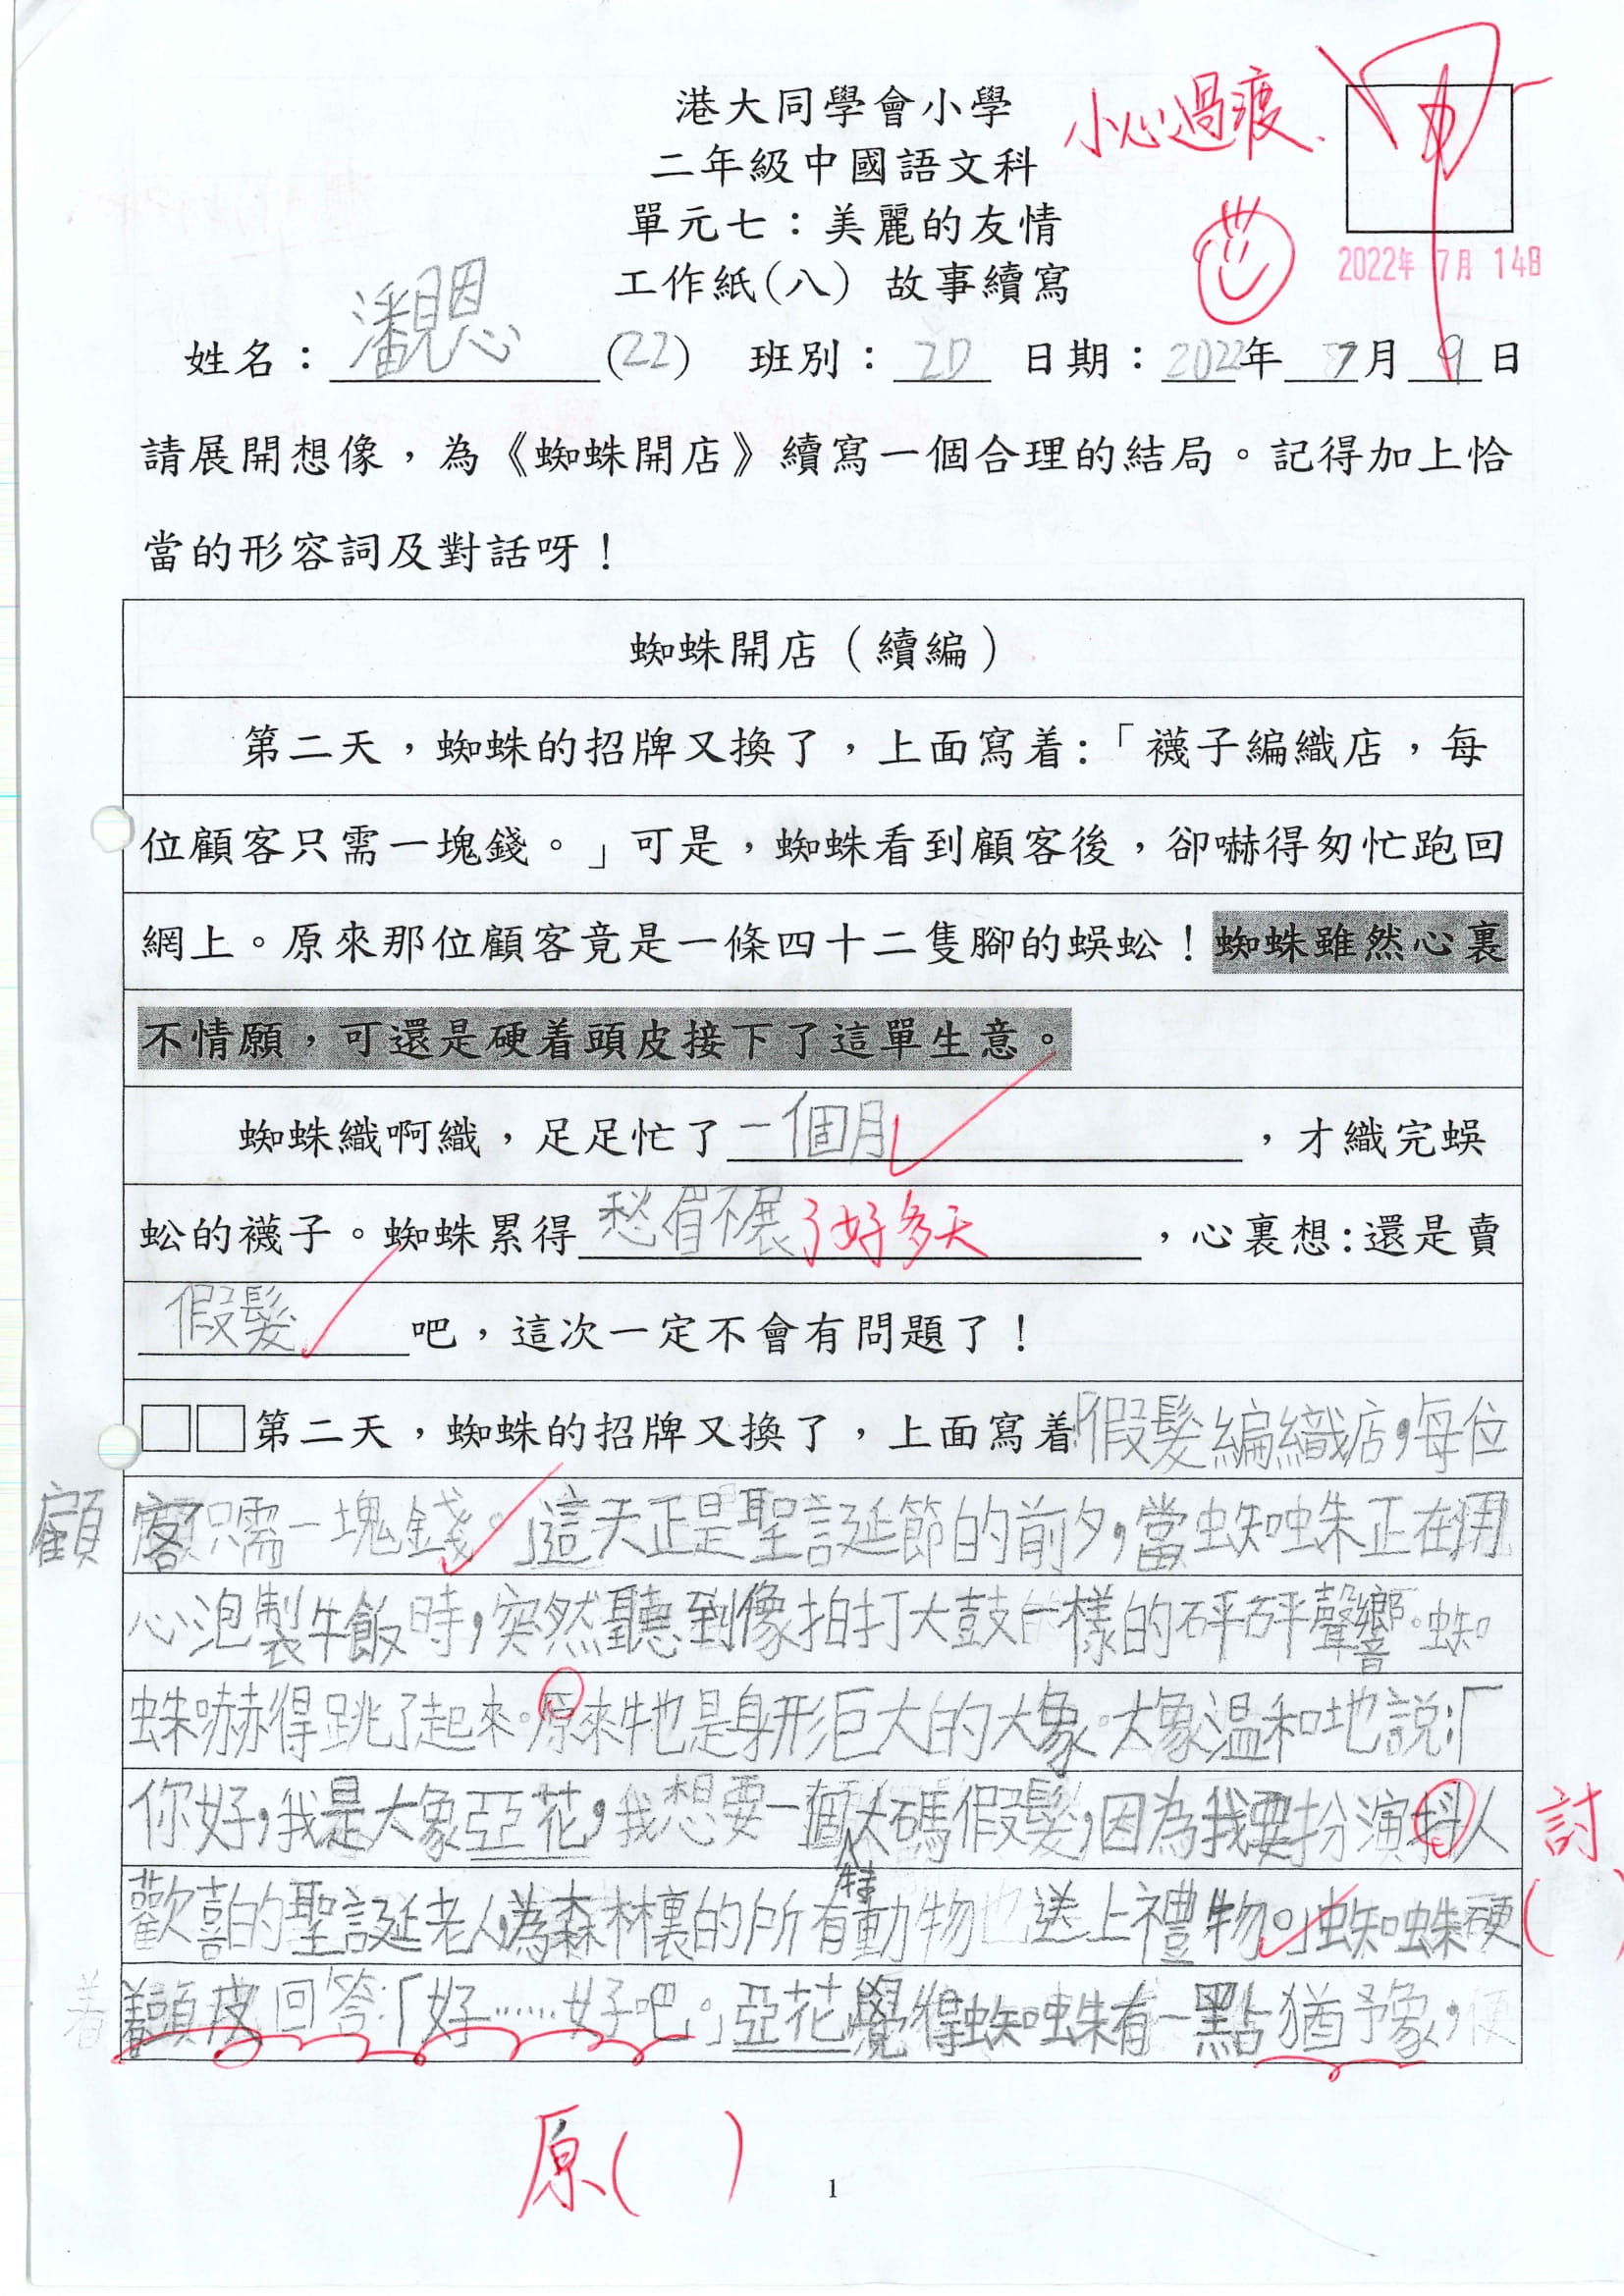 港大同學會小學
小心過渡、
甲
二年級中國語文科
單元七：美麗的友情
2022年 7月 14日
工作紙(八) 故事續寫
姓名：潘恩 (22) 班別：2D 日期：2022年 7月 9日
請展開想像，為《蜘蛛開店》續寫一個合理的結局。記得加上恰
當的形容詞及對話呀！
蜘蛛開店（續編）
第二天，蜘蛛的招牌又換了，上面寫着：「襪子編織店，每
位顧客只需一塊錢。」可是，蜘蛛看到顧客後，卻嚇得匆忙跑回
網上。原來那位顧客竟是一條四十二隻腳的蜈蚣！蜘蛛雖然心裏
不情願，可還是硬着頭皮接下了這單生意。
蜘蛛織啊織，足足忙了一個月，才織完蜈
蚣的襪子。蜘蛛累得愁眉不展了好多天，心裏想：還是賣
假髮吧，這次一定不會有問題了！
□□第二天，蜘蛛的招牌又換了，上面寫着「假髮編織店，每位
顧客只需一塊錢。」這天正是聖誕節的前夕，當蜘蛛正在用
心泡製午飯時，突然聽到像拍打大鼓一樣的砰砰聲響。蜘
蛛嚇得跳了起來。原來牠是身形巨大的大象。大象溫和地說：「
你好，我是大象亞花，我想要一個特大碼假髮，因為我要扮演人 討
歡喜的聖誕老人，為森林裏的所有動物送上禮物。」蜘蛛硬 ( )
着頭皮回答：「好……好吧。」亞花覺得蜘蛛有一點猶予象，便
原( )
1